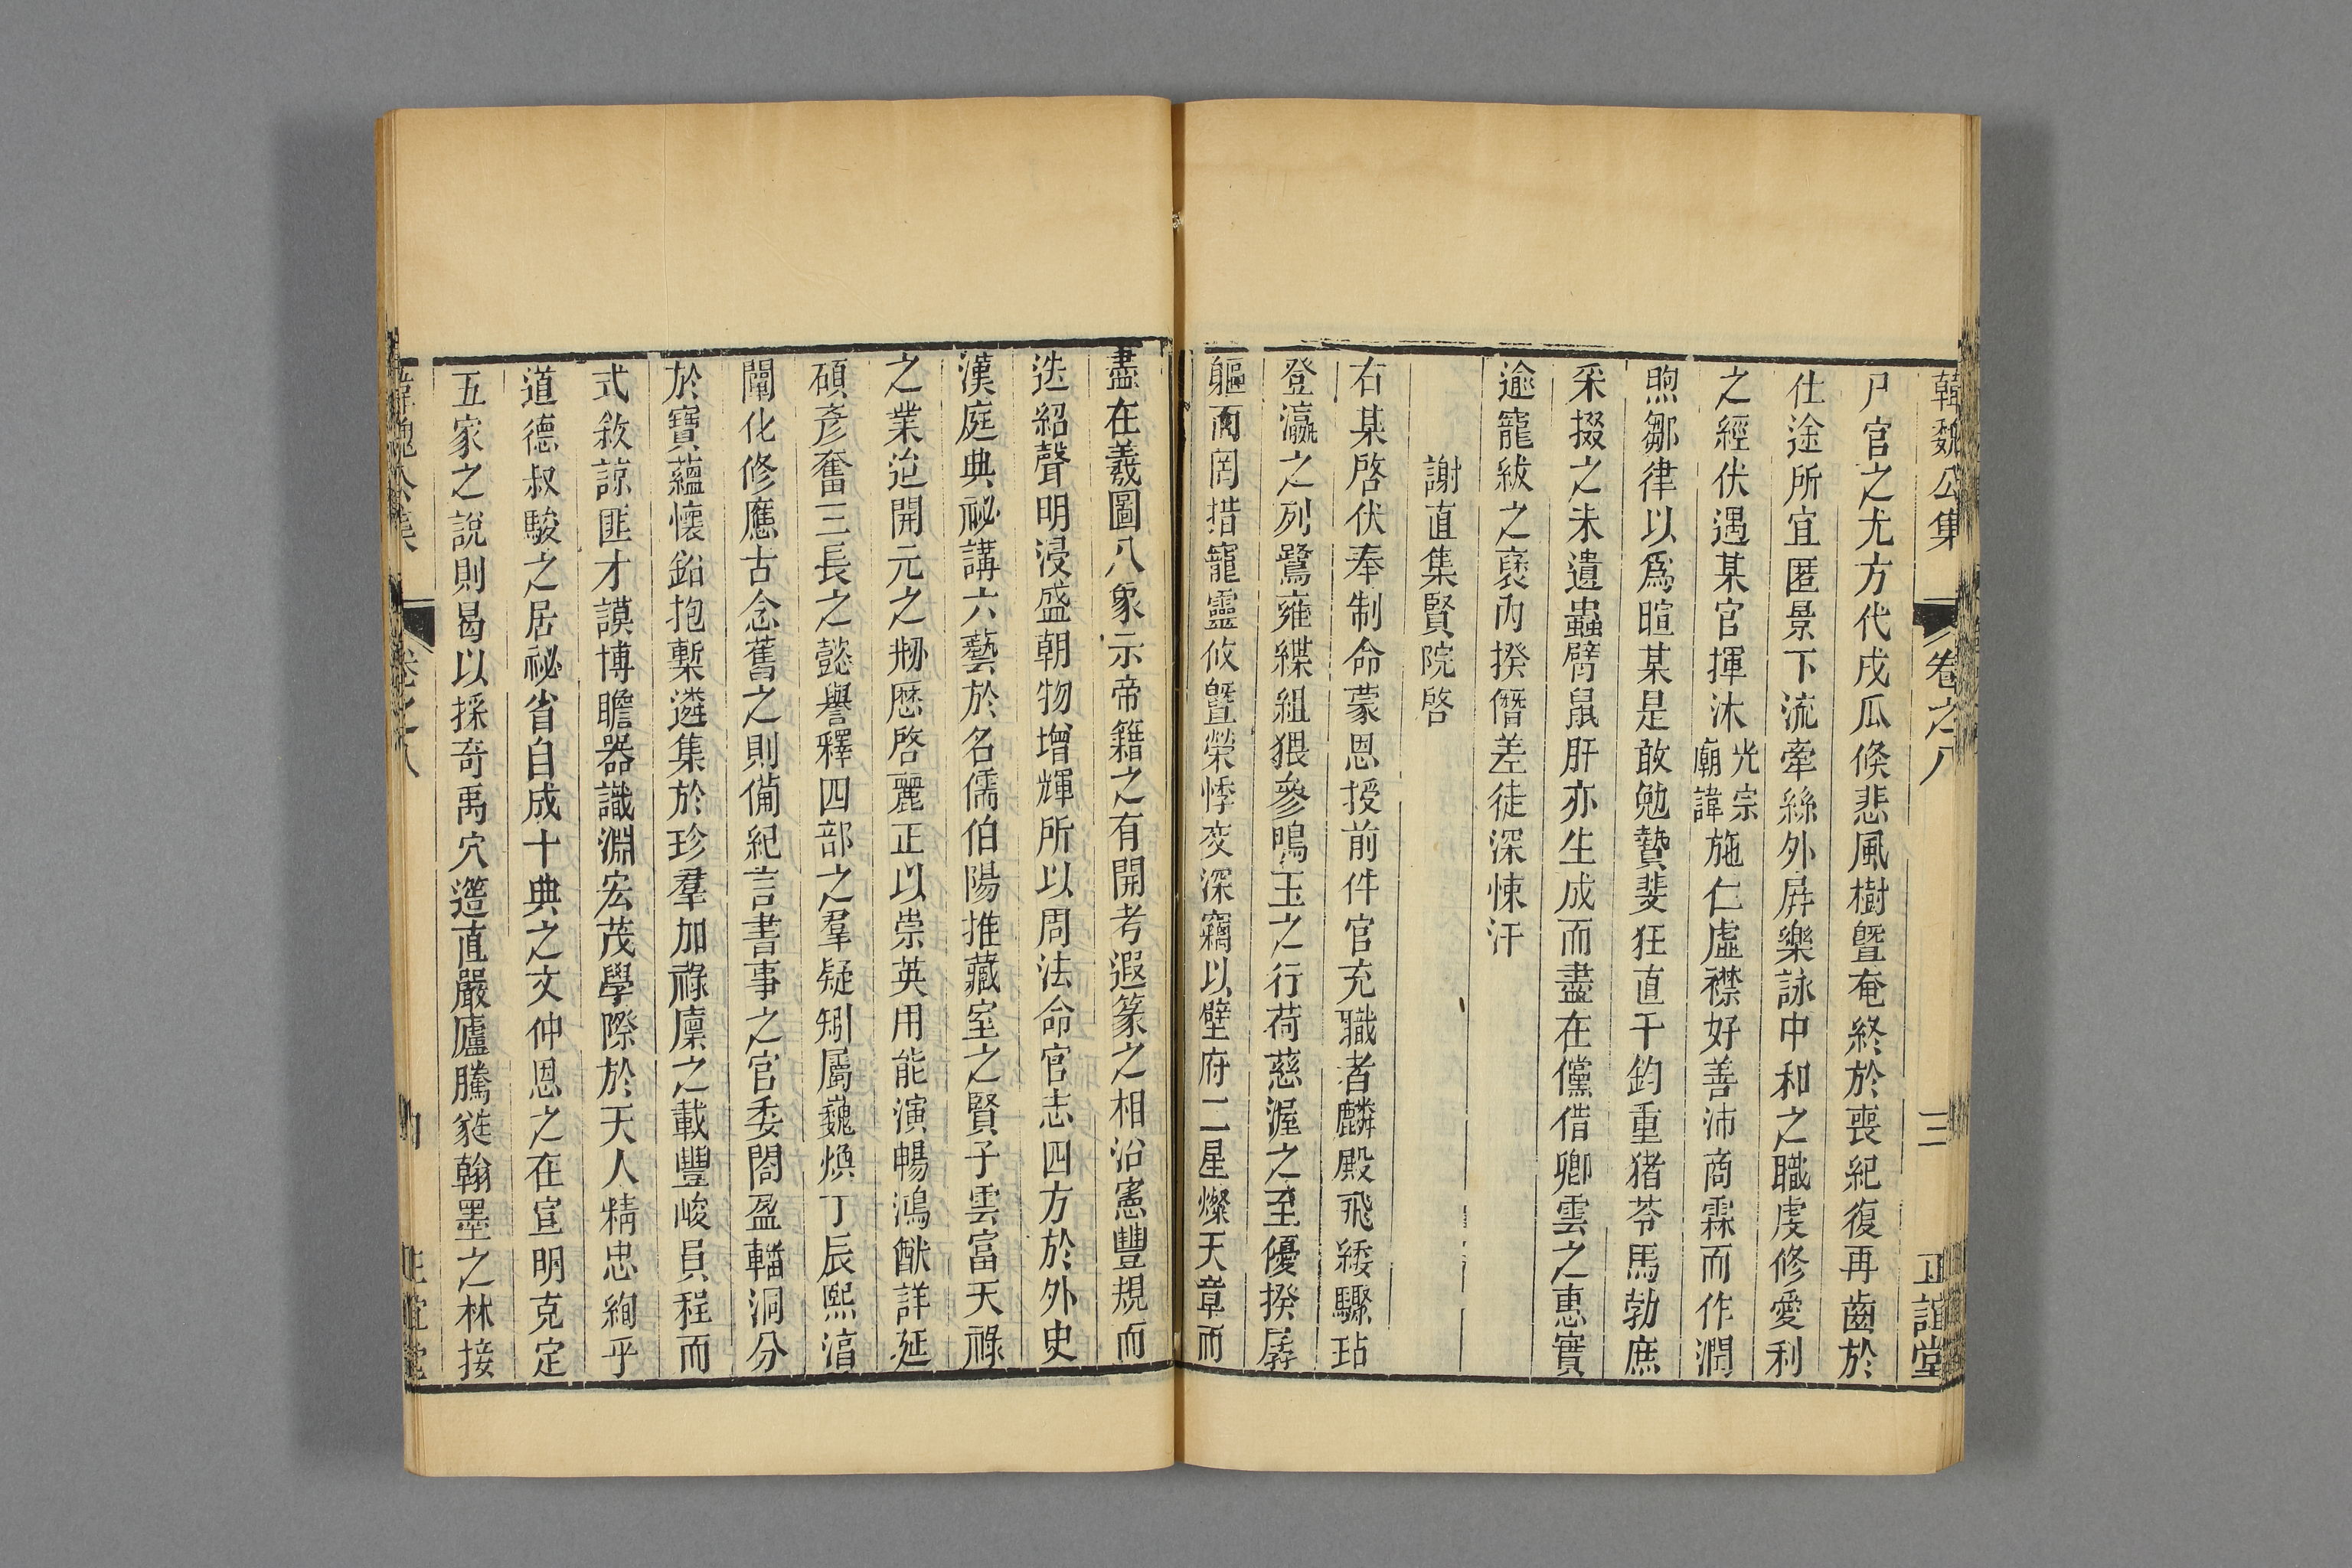 韓魏公集 卷之八 三 正誼堂
尸官之尤方代戍瓜倏悲風樹曁奄終於喪紀復再齒於
仕途所宜匿景下流牽絲外屏樂詠中和之職虔修愛利
之經伏遇某官揮沐光宗廟諱施仁虛襟好善沛商霖而作潤
煦鄒律以爲暄某是敢勉贄斐狂直干鈞重猪苓馬勃庶
采掇之未遺蟲臂鼠肝亦生成而盡在儻借卿雲之惠實
逾寵紱之褒內揆僭差徒深悚汗
謝直集賢院啓
右某啓伏奉制命蒙恩授前件官充職者麟殿飛緌驟玷
登瀛之列鷺雍緤組猥參鳴玉之行荷慈渥之至優揆孱
軀而罔措寵靈攸曁榮悸交深竊以壁府二星燦天章而
盡在羲圖八象示帝籍之有開考遐篆之相沿憲豐規而
迭紹聲明浸盛朝物增輝所以周法命官志四方於外史
漢庭典祕講六藝於名儒伯陽推藏室之賢子雲富天祿
之業迨開元之刱厯啓麗正以崇英用能演暢鴻猷詳延
碩彥奮三長之懿譽釋四部之羣疑矧屬巍煥丁辰熙淯
闡化修應古念舊之則備紀言書事之官委閤盈轓洞分
於寶蘊懷鉛抱槧遴集於珍羣加祿廩之載豐峻員程而
式敘諒匪才謨博瞻器識淵宏茂學際於天人精忠絢乎
道德叔駿之居祕省自成十典之文仲恩之在宣明克定
五家之說則曷以採奇禹穴簉直嚴廬騰蕤翰墨之林接
韓魏公集 卷之八 四 正誼堂